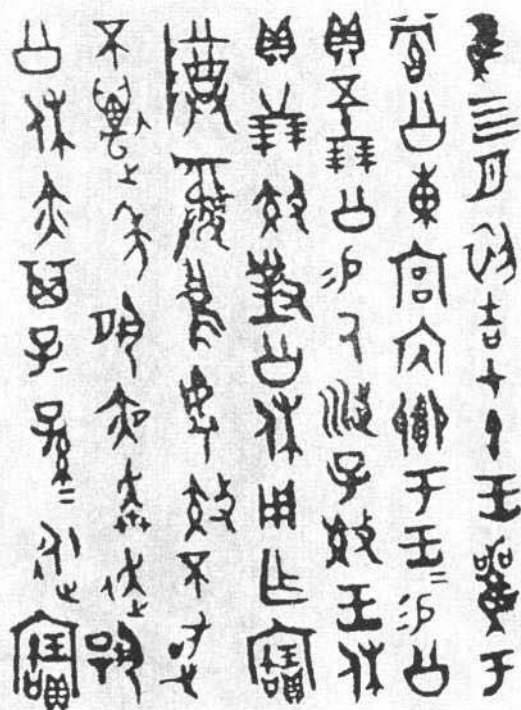 隹四月初吉甲午王雚于
嘗公東宮內鄉于王=易公
貝五十朋公易氒涉子效王休
貝廿朋效對公休用乍寶
尊彝烏虖效不敢
不萬年夙夜奔走揚
公休亦其子=孫=永寶